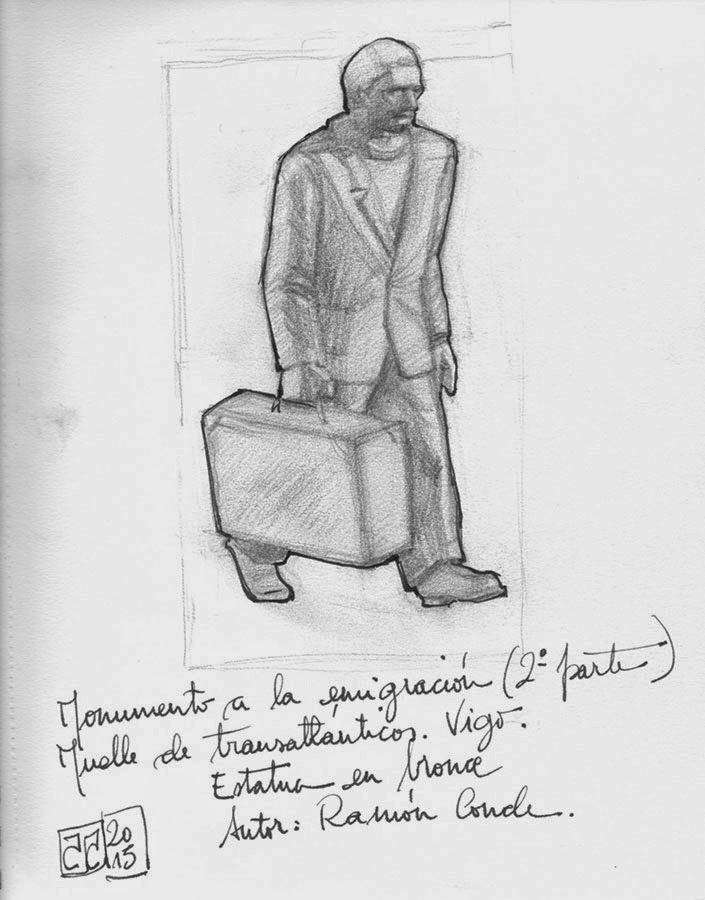 Monumento a la emigración (2ª parte)
Muelle de transatlánticos. Vigo.
Estatua en bronce
Autor: Ramón Conde.
20
15